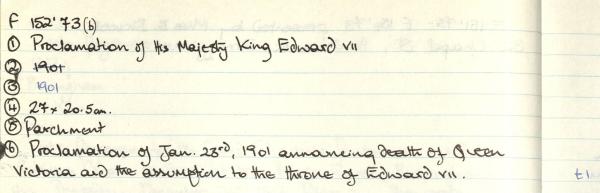 F 152'73(b)
① Proclamation of His Majesty King Edward VII
② 1901
③ 1901
④ 27 x 20.5cm.
⑤ Parchment
⑥ Proclamation of Jan. 23rd, 1901 announcing death of Queen
Victoria and the assumption to the throne of Edward VII.